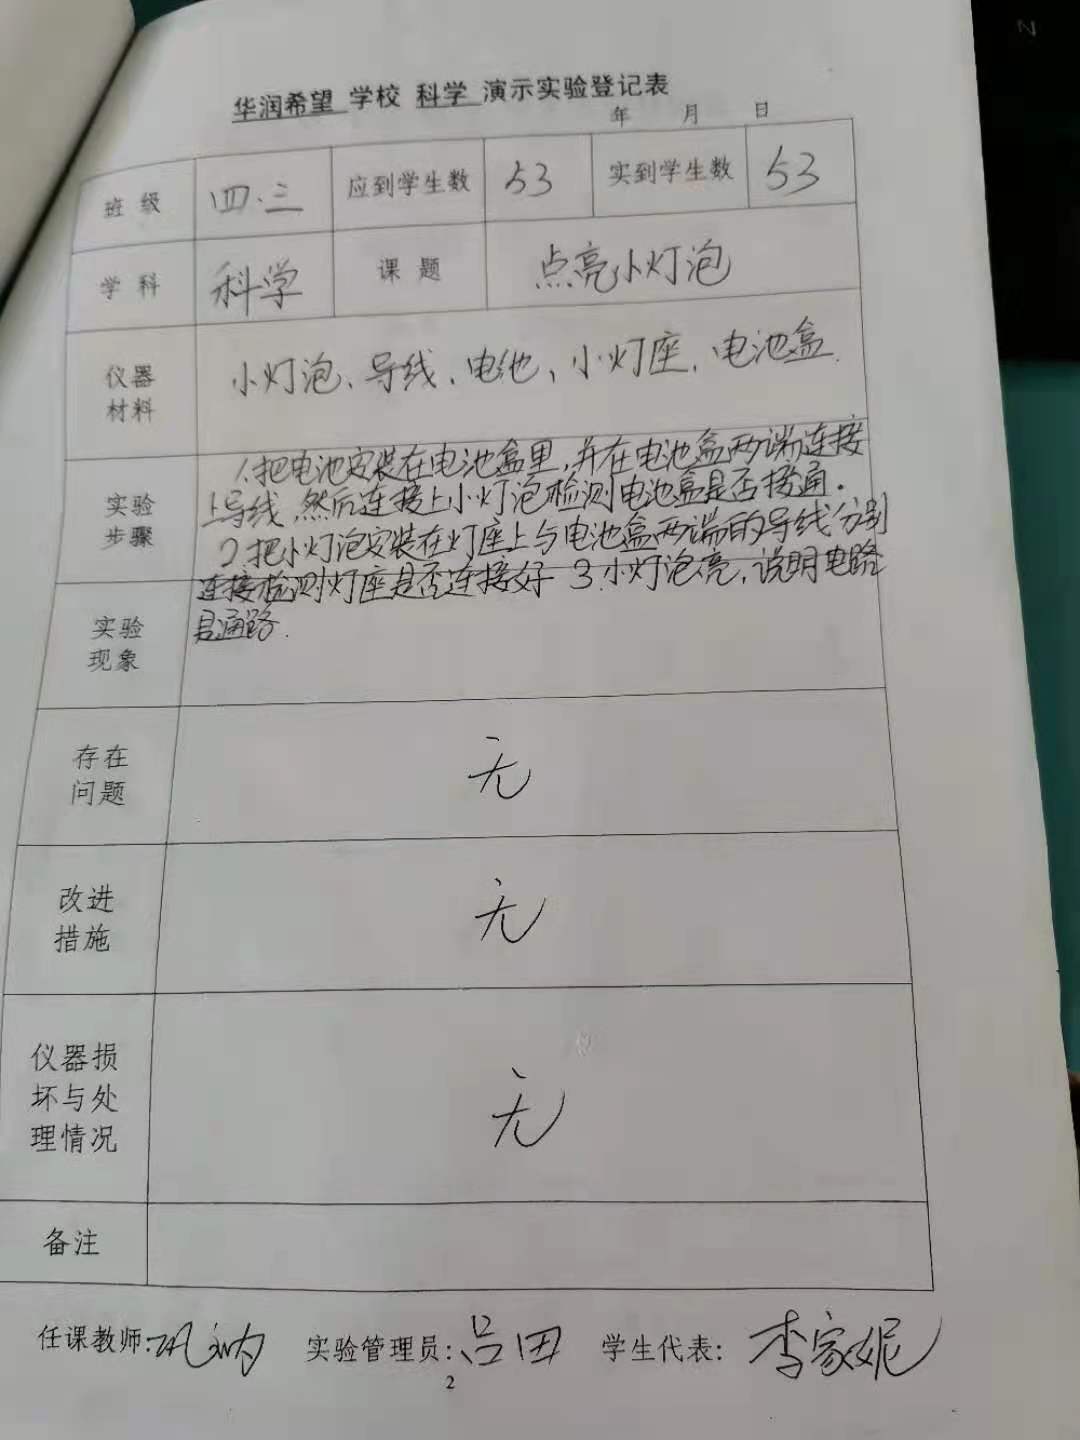 华润希望 学校 科学 演示实验登记表
年 月 日
班级 四.三 应到学生数 53 实到学生数 53
学科 科学 课题 点亮小灯泡
仪器材料 小灯泡、导线、电池、小灯座、电池盒.
实验步骤 1.把电池安装在电池盒里,并在电池盒两端连接
上导线,然后连接上小灯泡检测电池盒是否接通.
2.把小灯泡安装在灯座上与电池盒两端的导线分别
连接检测灯座是否连接好 3.小灯泡亮,说明电路
实验现象 是通路.
存在问题 无
改进措施 无
仪器损坏与处理情况 无
备注
任课教师: 实验管理员:吕田 学生代表:李家妮
2